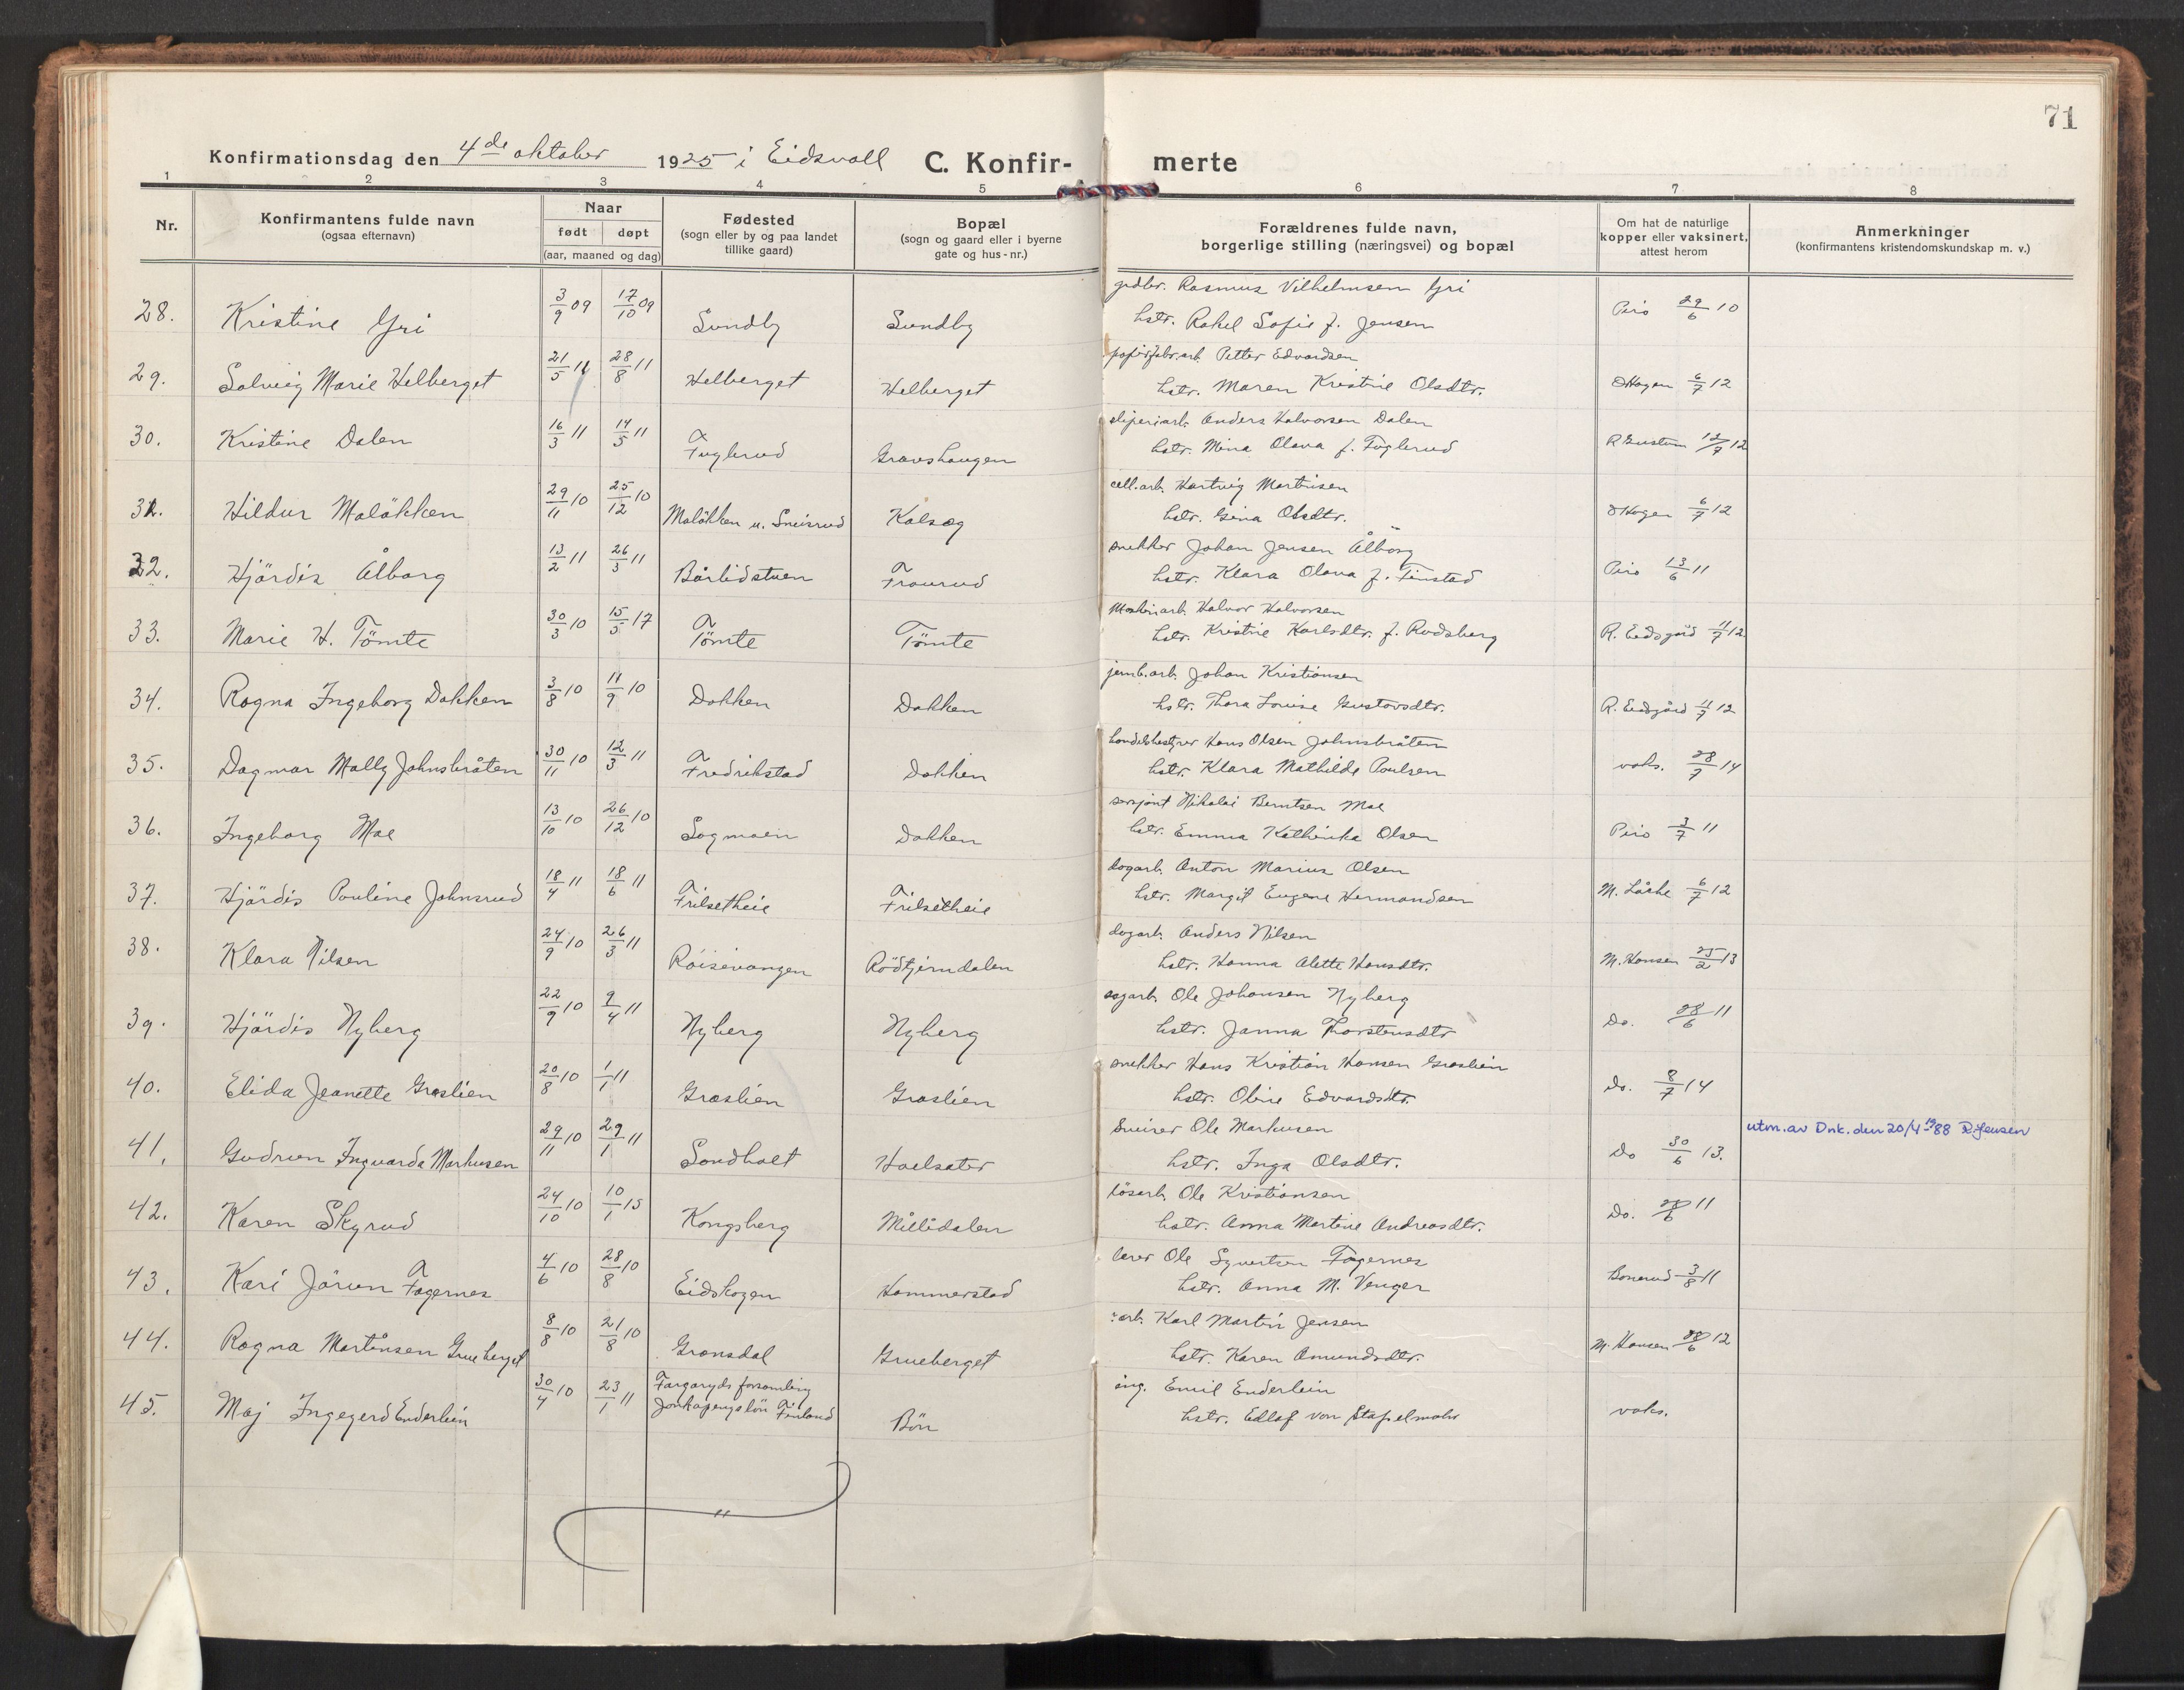 71
Konfirmationsdag den 4de oktober 1925 i Eidsvoll C. Konfir- merte
1 2 3 4 5 6 7 8
Nr. Konfirmantens fulde navn (ogsaa efternavn) Naar født døpt (aar, maaned og dag) Fødested (sogn eller by og paa landet tillike gaard) Bopæl (sogn og gaard eller i byerne gate og hus-nr.) Forældrenes fulde navn, borgerlige stilling (næringsvei) og bopæl Om hat de naturlige kopper eller vaksinert, attest herom Anmerkninger (konfirmantens kristendomskundskap m. v.)
grdbr. Rasmus Vilhelmsen Gri
28. Kristine Gri 3/9 09 17/10 09 Sundby Sundby hstr. Rakel Sofie f. Jensen Piro 29/6 10
papirfabr.arb. Petter Edvardsen
29. Solveig Marie Helberget 21/5 11 28/8 11 Helberget Helberget hstr. Maren Kristine Olsdtr. OHagen 6/7 12
sliperiarb. Anders Halvorsen Dalen
30. Kristine Dalen 16/3 11 14/5 11 Fuglerud Gravshaugen hstr. Mina Olava f. Fuglerud 12/7 12
cell.arb. Hartvig Martinsen
31. Hildur Maløkken 29/11 10 25/12 10 Maløkken u. Sneisrud Kalsæg hstr. Gina Olsdtr. OHagen 6/7 12
snekker Johan Jensen Ålborg
32. Hjördis Ålborg 13/2 11 26/3 11 Bårlidstuen Fraurud hstr. Klara Olava f. Finstad Piro 13/6 11
Maskinarb. Halvor Halvorsen
33. Marie H. Tömte 30/3 10 15/5 17 Tömte Tömte hstr. Kristine Karlsdtr. f. Rodsberg R. Eidsgård 11/7 12
jernb.arb. Johan Kristiansen
34. Ragna Ingeborg Dokken 3/8 10 11/9 10 Dokken Dokken hstr. Thora Louise Gustavsdtr. R. Eidsgård 11/7 12
handelsbestyrer Hans Olsen Johnsbråten
35. Dagmar Mally Johnsbråten 30/11 10 12/3 11 Fredrikstad Dokken hstr. Klara Mathilde Poulsen vaks. 28/7 14
sersjant Nikolai Berntsen Moe
36. Ingeborg Moe 13/10 10 26/12 10 Sagmoen Dokken hstr. Emma Kathinka Olsen Piro 3/7 11
dagarb. Anton Marius Olsen
37. Hjördis Pouline Johnsrud 18/4 11 18/6 11 Frilsetheie Frilsetheie hstr. Margit Eugene Hermandsen M. Låche 6/7 12
dagarb. Anders Nilsen
38. Klara Nilsen 24/9 10 26/3 11 Röisevangen Rödtjerndalen hstr. Hanna Alette Hansdtr. M. Hansen 25/2 13
sagarb. Ole Johansen Nyberg
39. Hjördis Nyberg 22/9 10 9/4 11 Nyberg Nyberg hstr. Janna Thorstensdtr Do. 28/6 11
snekker Hans Kristian Hansen Graslien
40. Elida Jeanette Graslien 20/8 10 1/1 11 Graslien Graslien hstr. Oline Edvardsdtr. Do. 8/7 14
Sveiser Ole Markusen
41. Gudrun Ingvarda Markusen 29/11 10 29/1 11 Sandholt Hoelsæter hstr. Inga Olsdtr. Do 30/6 13. utm. av Dnk. den 20/4 1988 R. Jensen
lösarb. Ole Kristiansen
42. Karen Skyrud 24/10 10 10/1 15 Kongsberg Millidalen hstr. Anna Martine Andreasdtr. Do. 28/6 11
lærer Ole Syvertsen Fagernes
43. Kari Jörun Fagernes 4/6 10 28/8 10 Eidskogen Hammerstad hstr. Anna M. Venger Bonerud 3/8 11
arb. Karl Martin Jensen
44. Ragna Martinsen Grueberget 8/8 10 21/8 10 Gransdal Grueberget hstr. Karen Amundsdtr. M. Hansen 28/6 12
ing. Emil Enderlein
45. Maj Ingegerd Enderlein 30/4 10 23/1 11 Fargaryds forsamling Jonkøpengslön Finland Bön hstr. Edlaf von Stapelmohr vaks.